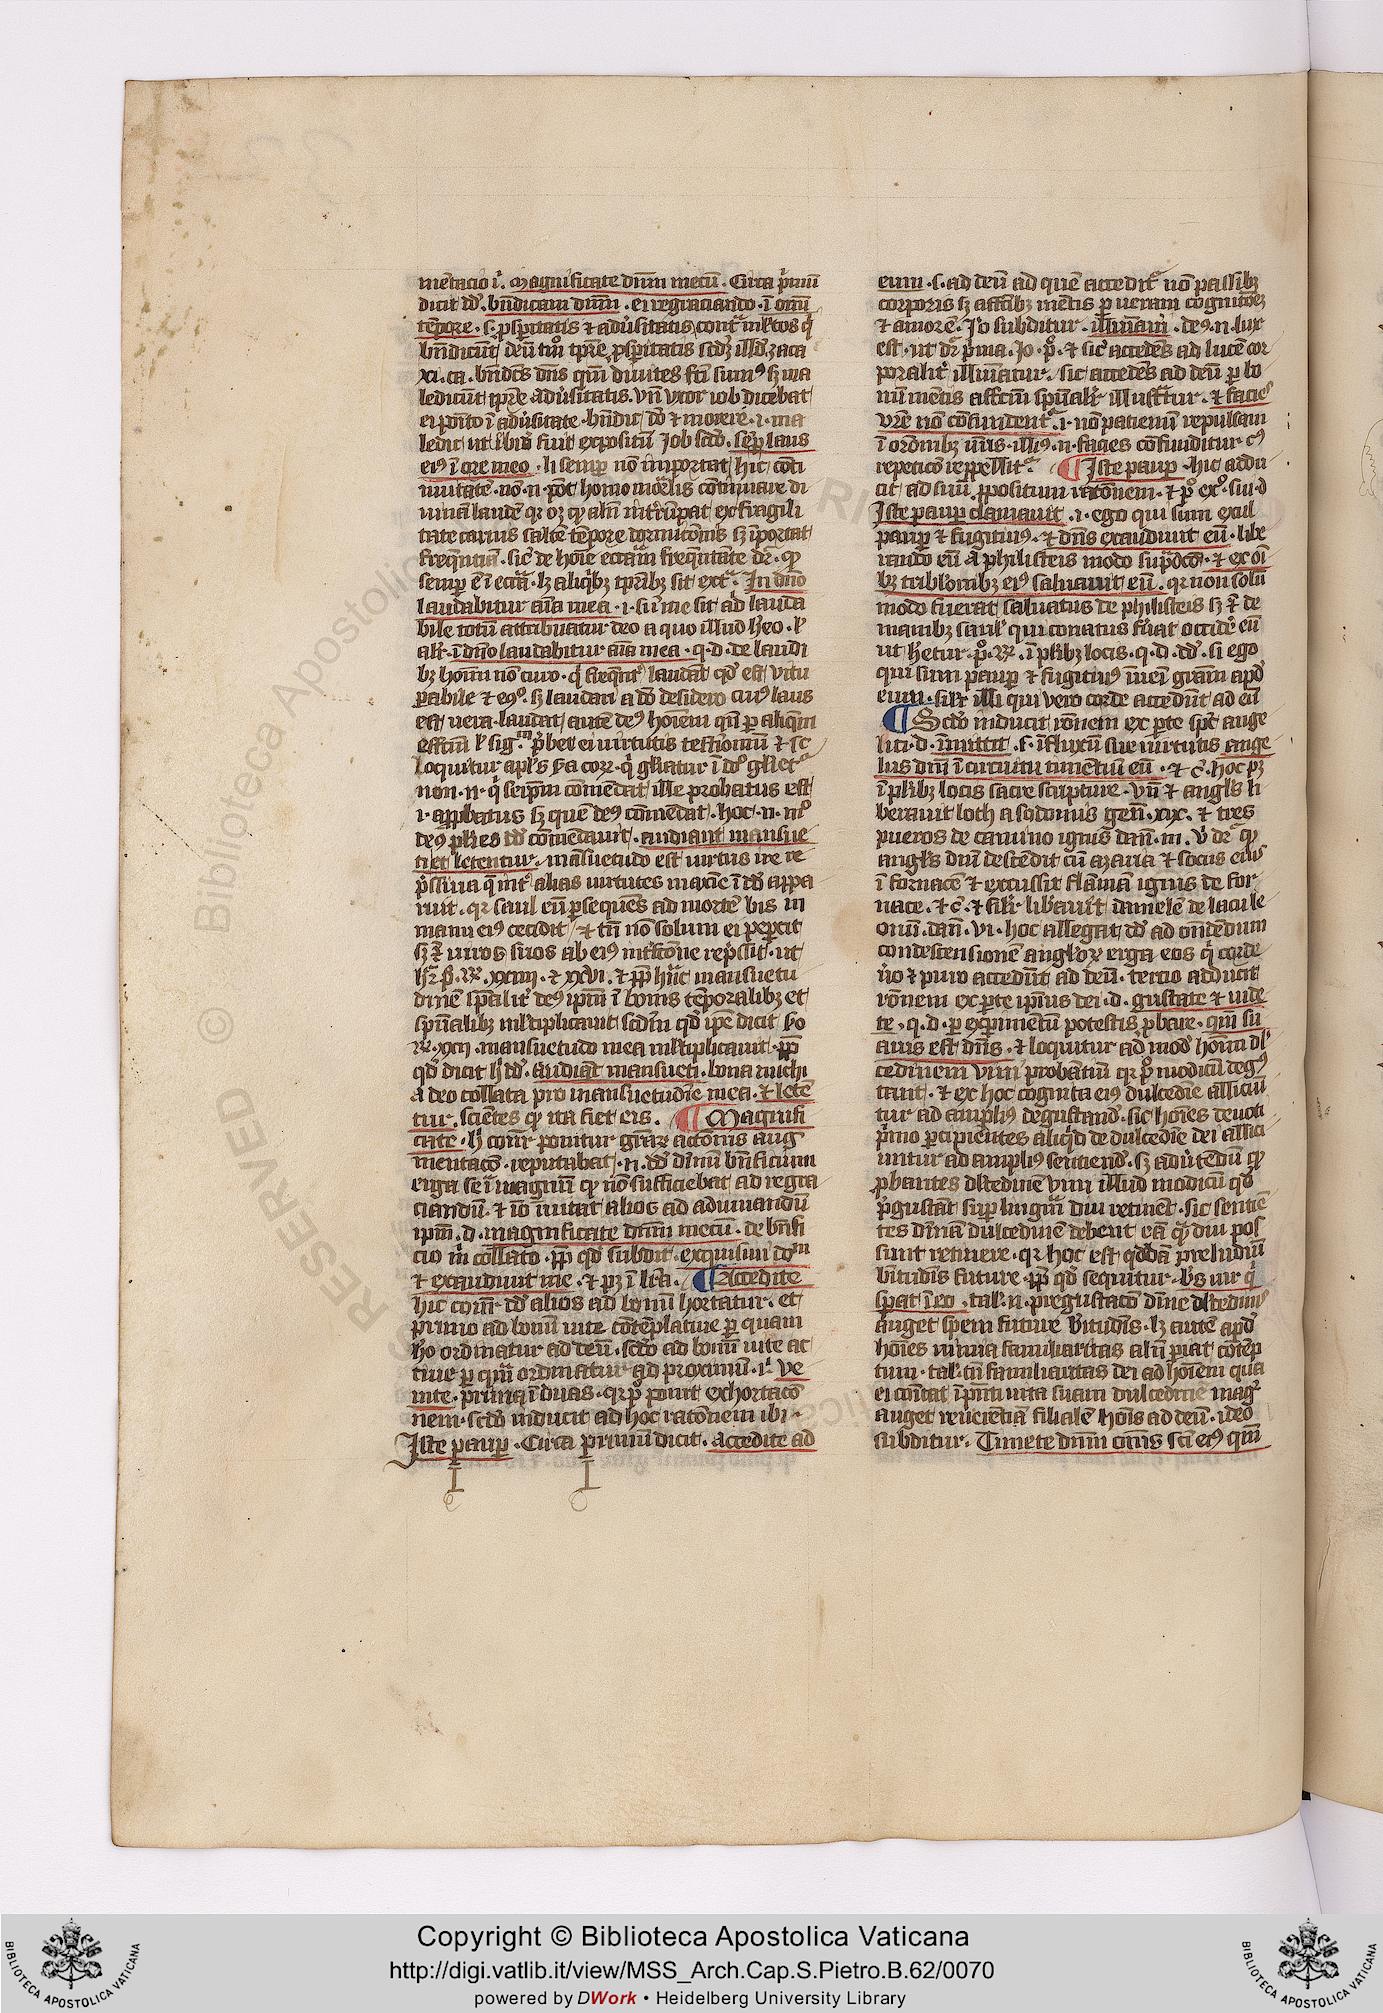 mētacio ī. Magnificate dnm̄ mecū. Circa p̄mū
dicit dd̄. bn̄dicam dnm̄. ei regraciando. ī omī
tēpore. s. ꝓsperitatis ⁊ adūsitatis
bn̄dicūt deū ꝓsperitatis zaca
xi. ca. bn̄dcs dns divites fcī sumꝰ sꝫ ma
ledicūt tpre adūsitatis. vn̄ vxor iob dicebat
ei posito ī adūsitate. bn̄dic dō ⁊ morere. i. ma
ledic fuit expositū Job scdo. semp laus
eiꝰ ī ore meo. li semp nō importat hic conti
nuitatē. nō. n. pōt homo mortalis continuare di
vinā laudē qr oꝫ ꝙ alīn interrūpat ex fragili
tate carnis saltē tēpore dormitōnis sꝫ īportat
frequētiā. sic de hoīe ecctiam frequētāte dr̄. ꝙ
semp ē ī ecctia lꝫ aliqibꝫ tpribꝫ sit ext. In dno
laudabitur aīa mea. i. si in me sit aliqd lauda
bile totū attribuatur deo a quo illud heo. l
alr. ī dno laudabitur aīa mea. q. d. de laudi
bꝫ hoīm nō curo. qi frequēter laudāt qd est vitu
pabile ⁊ eqo. sꝫ laudari a dō desidero cuiꝰ laus
est uera. laudat autē deꝰ hoīem qn̄ p aliquem
effectū l signū pbet ei uirtutis testimoniū ⁊ sic
loquitur apls ii a cor. x. qi gliatur ī dō glietr
non. n. qi seipm comēdat ille probatus est
i. approbatus sꝫ quē deꝰ comēdat. hoc. n. mo
deꝰ plies dd̄ comēdauit. audiant mansue
ti et letentur. mansuetudo est uirtus ire re
pssiua q int alias uirtutes maxie ī dd̄ appa
ruit. qr saul eū psequēs ad mortē bis in
manu eiꝰ cecidit. ⁊ tn̄ nō solum ei pepcit
sꝫ ⁊ uiros suos ab eiꝰ intfectōne repssit. ut
hr p. R. xxiiii. ⁊ xxvi. ⁊ ppr hāc mansuetu
dinē spalit deꝰ ipm ī bonis tēporalibꝫ et
spūalibꝫ mltiplicauit scdm qd ipe dicit iio
R. xxii. mansuetudo mea mltiplicauit. ppr
qd dicit hic dd̄. audiāt mansueti. bona michi
a deo collata pro mansuetudīe mea. ⁊ letē
tur. sciētes ꝙ ita fiet eis. ¶ Magnifi
cate. hic conr ponitur grāꝝ actōnis aug
mentacō. reputabat. n. dd̄ diuinū bn̄ficium
erga se ī magnū ꝙ nō sufficiebat ad regra
ciandū. ⁊ iō inuitat alios ad adiuuandū
ipm. d. magnificate dnm mecū. de bn̄fi
cio michi collato. ppr qd subdit. exquisiui dom
⁊ exaudiuit me. ⁊ pꝫ ī lr̄a. ¶ Accedite
hic conr dd̄ alios ad bonū hortatur. et
primo ad bonū uite contēplatiue p quam
hō ordinatur ad deū. scdo ad bonū uite ac
tiue p quā ordinatur ad proximū. ibi ve
nite. prima ī duas. qr po ponit exhortacō
nem. scdo inducit ad hoc ratōnem ibi.
Iste paup. Circa primū dicit. accedite ad
eum. s. ad deū ad quē accedit nō passibꝫ
corporis sꝫ affectibꝫ mētis p ueram cognitōeꝫ
⁊ amorē. Iō subditur. illuīamī. deꝰ. n. lux
est. ut dr prima. Jo. po. ⁊ sic accedēs ad lucē cor
poralit illuīatur. sic accedēs ad deū p bo
nū mētis affectū spūalit illustratur. ⁊ facies
vrē nō confundent. i. nō patiemi repulsam
ī orōnibꝫ uris. illiꝰ. n. facies confunditur cꝰ
repeticō reppellit. ¶ Iste paup. hic addu
cit ad suū ppositum ratōnem. ⁊ po exo. sui. d
Iste paup clamauit. i. ego qui sum exul
paup ⁊ fugitiuꝰ. ⁊ dns exaudiuit eū. libe
rando eū a philisteis modo supdcō. ⁊ ex oī
bꝫ tribl'onibꝫ eiꝰ saluauit eū. qr non solū
modo fuerat saluatus de philisteis sꝫ ⁊ de
manibꝫ saul qui conatus fūat occidē eū
ut hetur. po. R. ī plibꝫ locis. q. d. dd̄. si ego
qui sum paup ⁊ fugitiuꝰ īueni grām apd
eum. silr illi qui vero corde accedūt ad eū
¶ Scdo inducit rōnem ex pte spc ange
lici. d. īmittit. s. īfluxū sue uirtutis ange
lus dnī ī circuitu timētiū eū. ⁊ c. hoc pꝫ
ī plibꝫ locis sacre scripture. vn̄ ⁊ angls li
berauit loth a sodomis gen. xix. ⁊ tres
pueros de camino ignis dan. iii. v dr ꝙ
angls dnī descēdit cū azaria ⁊ sociis eius
ī fornacē ⁊ excussit flāmā ignis de for
nace. ⁊ c. ⁊ silr libauit danielē de lacu le
onū. dan. vi. hoc allegat dd̄ ad ondēdum
condescensionē angloꝝ erga eos qi corde
uo ⁊ puro accedūt ad deū. tercio adducit
rōnem ex pte ipsius dei. d. gustate ⁊ uide
te. q. d. p expimētū potestis pbare. qm su
auis est dns. ⁊ loquitur ad modū hoīm dl
cedinem vini probātiū qr po modicū degus
tant. ⁊ ex hoc cognita eiꝰ dulcedīe alliciū
tur ad ampliꝰ degustandū. sic hoīes deuoti
pmo pcipientes aliqd de dulcedīe dei allici
untur ad ampliꝰ sentiendū. sꝫ aduertēdū ꝙ
pbantes dlcedinē vini illud modicū qd
pgustāt sup linguā diu retinēt. sic sentiē
tes diuinā dulcedinē debent eā quādiu pos
sunt retinere. qr hoc est qddā preludiū
btitudīs future. ppr qd sequitur. bts uir qi
sperat ī eo. talis. n. pregustacō diuīe dlcedinis
auget spem future btitudīs. lꝫ autē apd
hoīes nimia familiaritas alīn pariat contēp
tum. talis tn̄ familiaritas dei ad hoīem qua
ei comūicat ī pn̄ti uita suam dulcedinē magis
auget reuerentiā filialē hoīs ad deū. ideo
subditur. Timete dnm oms sci eiꝰ qm
Copyright © Biblioteca Apostolica Vaticana
http://digi.vatlib.it/view/MSS_Arch.Cap.S.Pietro.B.62/0070
powered by DWork • Heidelberg University Library
BIBLIOTECA APOSTOLICA VATICANA
BIBLIOTECA APOSTOLICA VATICANA